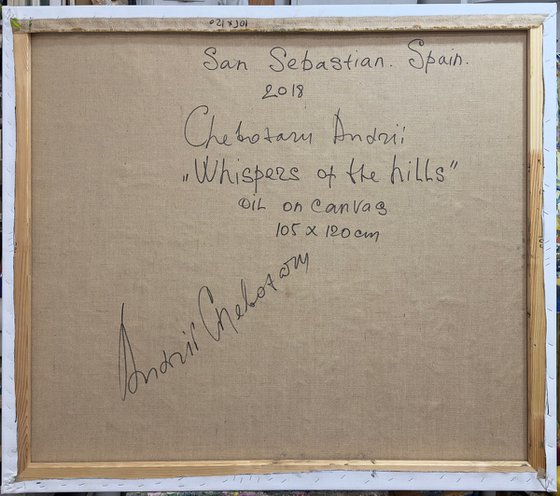 105x120
San Sebastian. Spain.
2018
Chebotaru Andrii
„Whispers of the hills”
oil on canvas
105 x 120 cm
Andrii Chebotaru